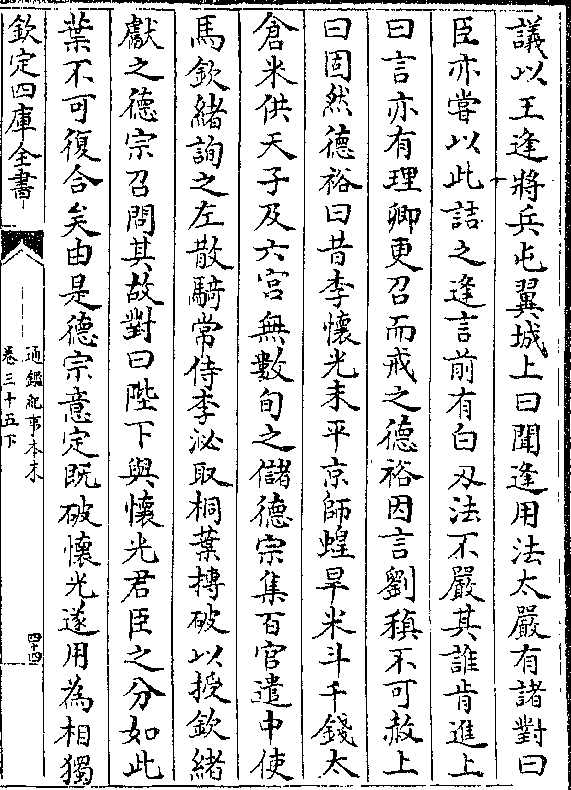 議以王逢將兵屯翼城上曰聞逢用法太嚴有諸對曰
臣亦嘗以此詰之逢言前有白刃法不嚴其誰肯進上
曰言亦有理卿更召而戒之德裕因言劉稹不可赦上
曰固然德裕曰昔李懷光未平京師蝗旱米斗千錢太
倉米供天子及六宮無數旬之儲德宗集百官遣中使
馬欽緒詢之左散騎常侍李泌取桐葉摶破以授欽緒
獻之德宗召問其故對曰陛下與懷光君臣之分如此
葉不可復合矣由是德宗意定既破懷光遂用為相獨
欽定四庫全書
通鑑紀事本末
卷三十五下
四十四